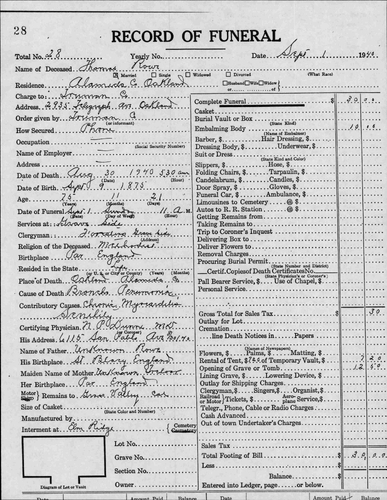 28
RECORD OF FUNERAL
Total No. 28 Yearly No. Date Sept 1 1940
Name of Deceased Thomas Rowe
Married Single Widowed Divorced (What Race)
Residence Alameda Co Oakland
Husband Wife
Charge to Truman Co.
Address 2935 Telegraph Av. Oakland
Order given by Truman Co
(or informant)
How Secured Phone
Occupation
(Social Security Number)
Name of Employer
Address
Date of Death Aug 30 1940 5:30 AM
Date of Birth Sept 9 1875
Age 11 21
Date of Funeral Sept 1 Sunday 11 A.M.
Services at Grave Side
Clergyman
Religion of the Deceased Methodist
Birthplace England
Resided in the State
(or U. S., City or County)
Place of Death Oakland Alameda Co
Cause of Death Broncho Pneumonia
Contributory Causes Chronic Myocarditis
Senility
Certifying Physician
His Address 6115 San Pablo Ave
Name of Father Unknown Rowe
His Birthplace England
Maiden Name of Mother Unknown
Her Birthplace England
Motor Ship Remains to Grass Valley car
Size of Casket
(State Color and Number)
Manufactured by
Interment at Elm Ridge Cemetery
Crematory
Lot No.
Grave No.
Section No.
Owner
Diagram of Lot or Vault
Complete Funeral $ 30
Casket
Burial Vault or Box
(State Kind)
Embalming Body 10
(Name of Embalmer)
Barber, $ Hair Dressing, $
Dressing Body, $ Underwear, $
Suit or Dress
(State Kind and Color)
Slippers, $ Hose, $
Folding Chairs, $ Tarpaulin, $
Candelabrum, $ Candles, $
Door Spray, $ Gloves, $
Funeral Car, $ Ambulance, $
Limousines to Cemetery @ $
Autos to R. R. Station @ $
Getting Remains from
Taking Remains to
Trip to Coroner's Inquest
Delivering Box to
Deliver Flowers to
Removal Charges
Procuring Burial Permit
Certif. Copies of Death Certificates No.
(State Physician's or Coroner's)
Pall Bearer Service, $ Use of Chapel, $
Personal Service
Gross Total for Sales Tax $ 30
Outlay for Lot
Cremation
line Death Notices in Papers
Newspapers
Flowers, $ Palms, $ Matting, $
Rental of Tent, $ of Temporary Vault, $ 7 20
Opening Grave or Tomb 12 50
Outlay for Shipping Charges
Clergyman, $ Singers, $ Organist, $
Railroad Motor Tickets, $ Aeroplane Service, $
Telgr., Phone, Cable or Radio Charges
Cash Advanced
Out of town Undertaker's Charges
Sales Tax
Total Footing of Bill $
Less
Balance
Entered into Ledger, page or below.